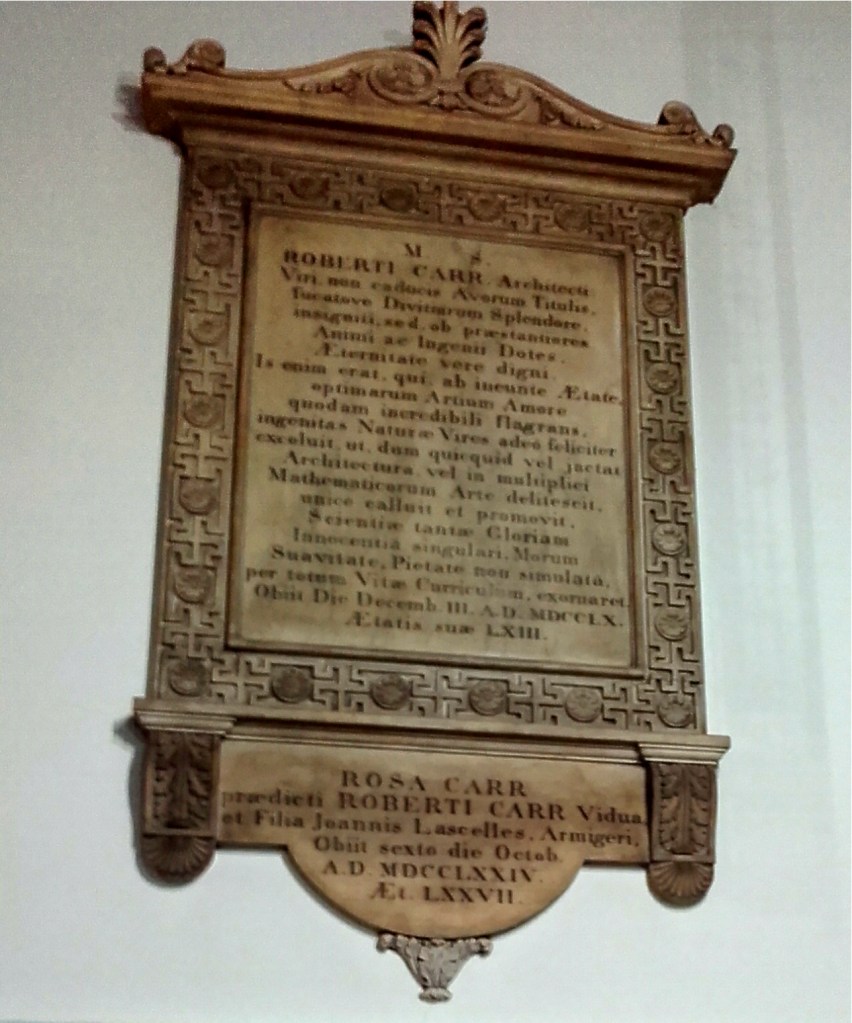 M. S.
ROBERTI CARR, Architecti
Viri, non caducis Avorum Titulis,
fucatove Divitiarum Splendore,
insigniti, sed, ob præstantiores
Animi ac Ingenii Dotes,
Æternitate vere digni.
Is enim erat, qui, ab ineunte Ætate,
optimarum Artium Amore
quodam incredibili flagrans,
ingenitas Naturæ Vires adeó feliciter
excoluit, ut, dum quicquid vel jactat
Architectura, vel in multiplici
Mathematicorum Arte delitescit,
unicè calluit et promovit,
Scientiæ tantæ Gloriam
Innocentiâ singulari, Morum
Suavitate, Pietate non simulatâ,
per totum Vitæ Curriculum, exornaret.
Obiit Die Decemb. III. A.D. MDCCLX.
Ætatis suæ LXIII.
ROSA CARR
prædicti ROBERTI CARR Vidua,
et Filia Joannis Lascelles, Armigeri,
Obiit sexto die Octob.
A.D. MDCCLXXIV.
Æt. LXXVII.